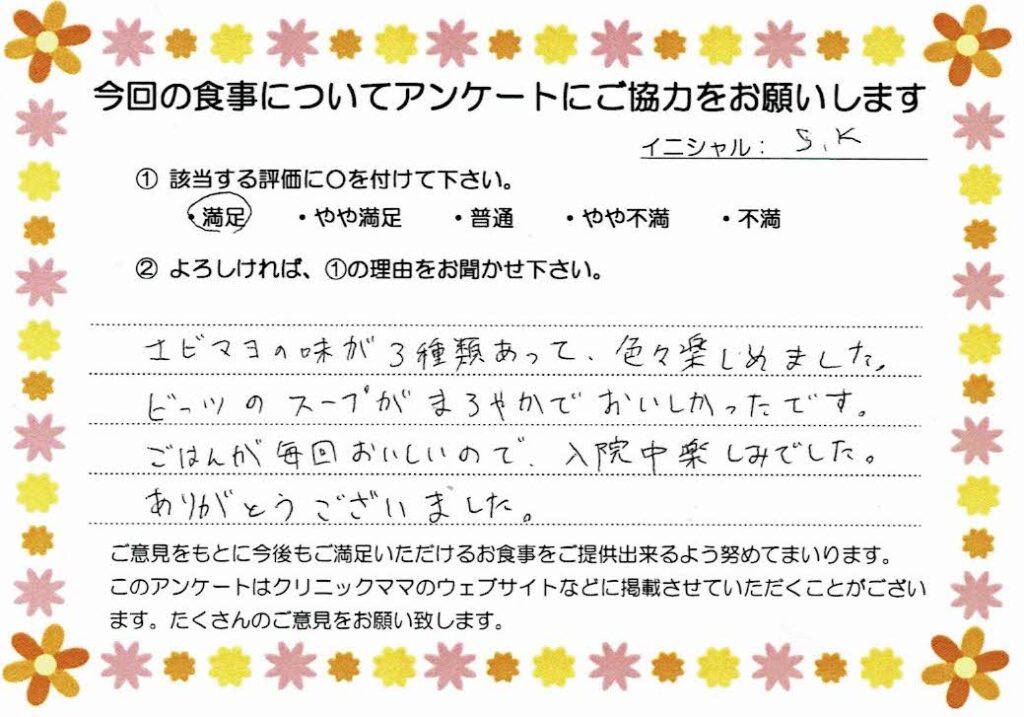 今回の食事についてアンケートにご協力をお願いします
イニシャル： S.K
① 該当する評価に〇を付けて下さい。
・満足 ・やや満足 ・普通 ・やや不満 ・不満
② よろしければ、①の理由をお聞かせ下さい。
エビマヨの味が3種類あって、色々楽しめました。
ビーツのスープがまろやかでおいしかったです。
ごはんが毎回おいしいので、入院中楽しみでした。
ありがとうございました。
ご意見をもとに今後もご満足いただけるお食事をご提供出来るよう努めてまいります。
このアンケートはクリニックママのウェブサイトなどに掲載させていただくことがござい
ます。たくさんのご意見をお願い致します。